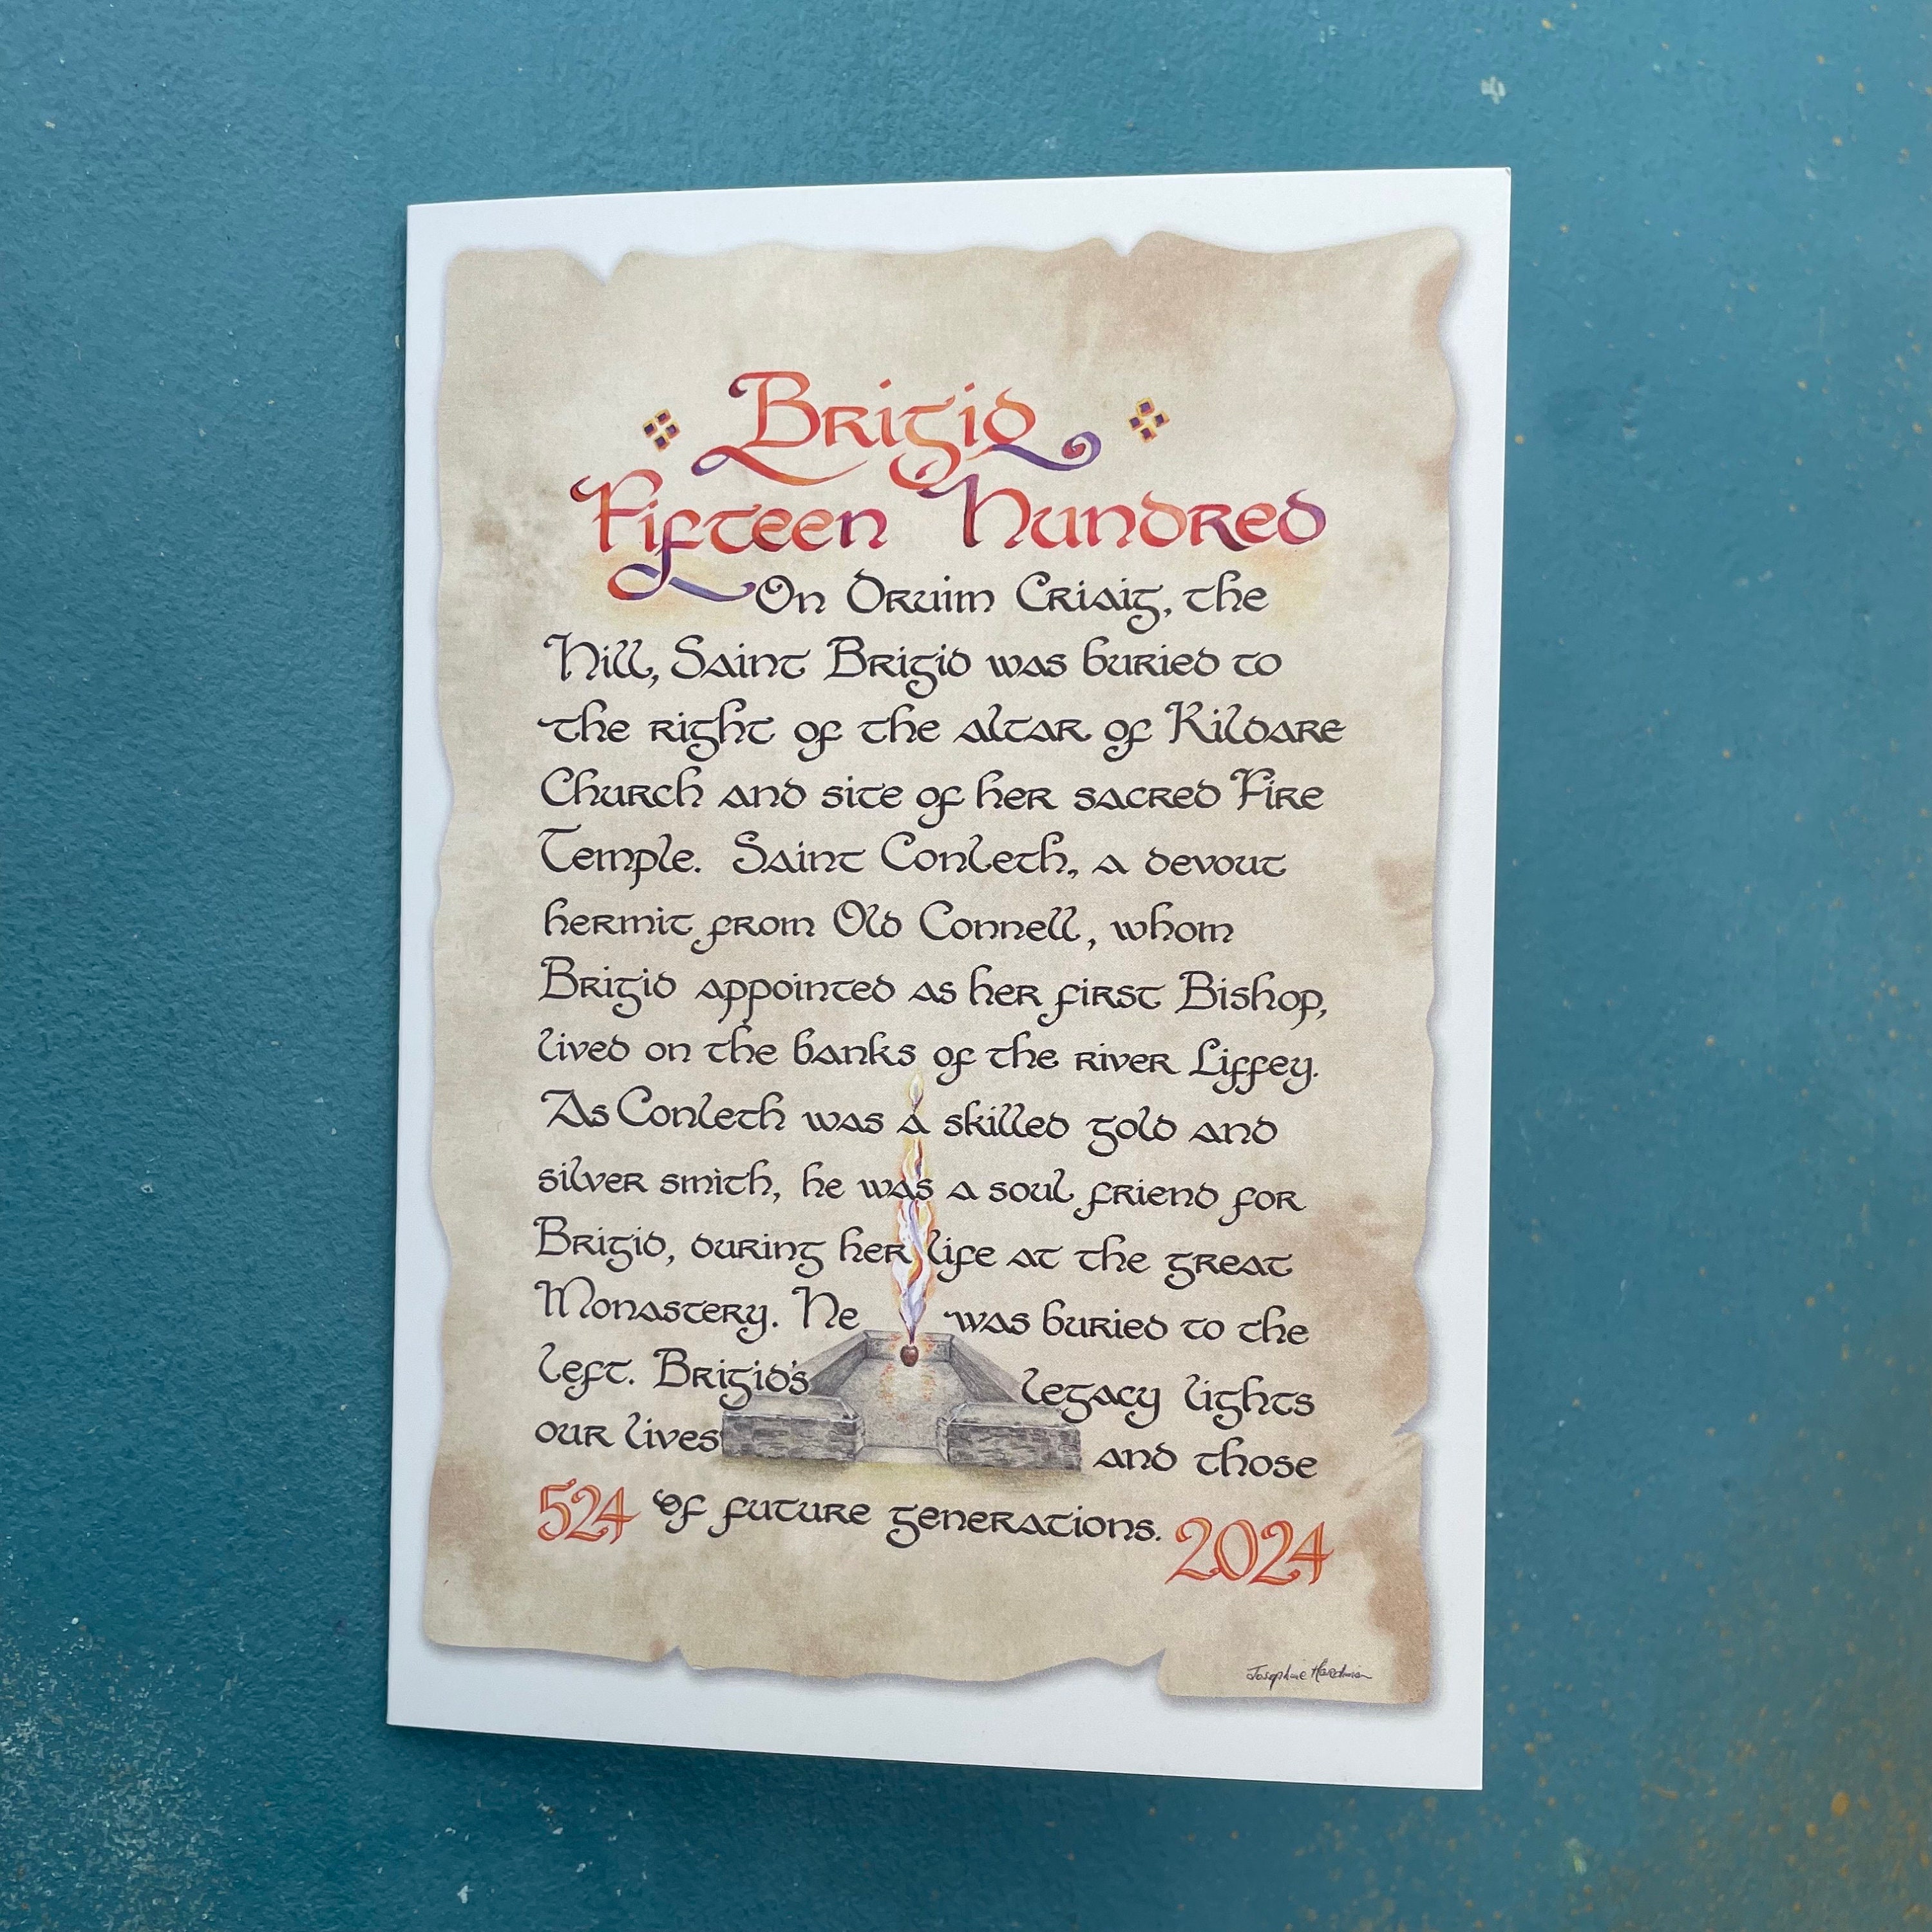 Brigid
Fifteen Hundred
On Druim Criaig, the
Hill, Saint Brigid was buried to
the right of the altar of Kildare
Church and site of her sacred Fire
Temple. Saint Conleth, a devout
hermit from Old Connell, whom
Brigid appointed as her first Bishop,
lived on the banks of the river Liffey.
As Conleth was a skilled gold and
silver smith, he was a soul friend for
Brigid, during her life at the great
Monastery. He was buried to the
left. Brigid's legacy lights
our lives and those
524 of future generations. 2024
Josephine Hardiman